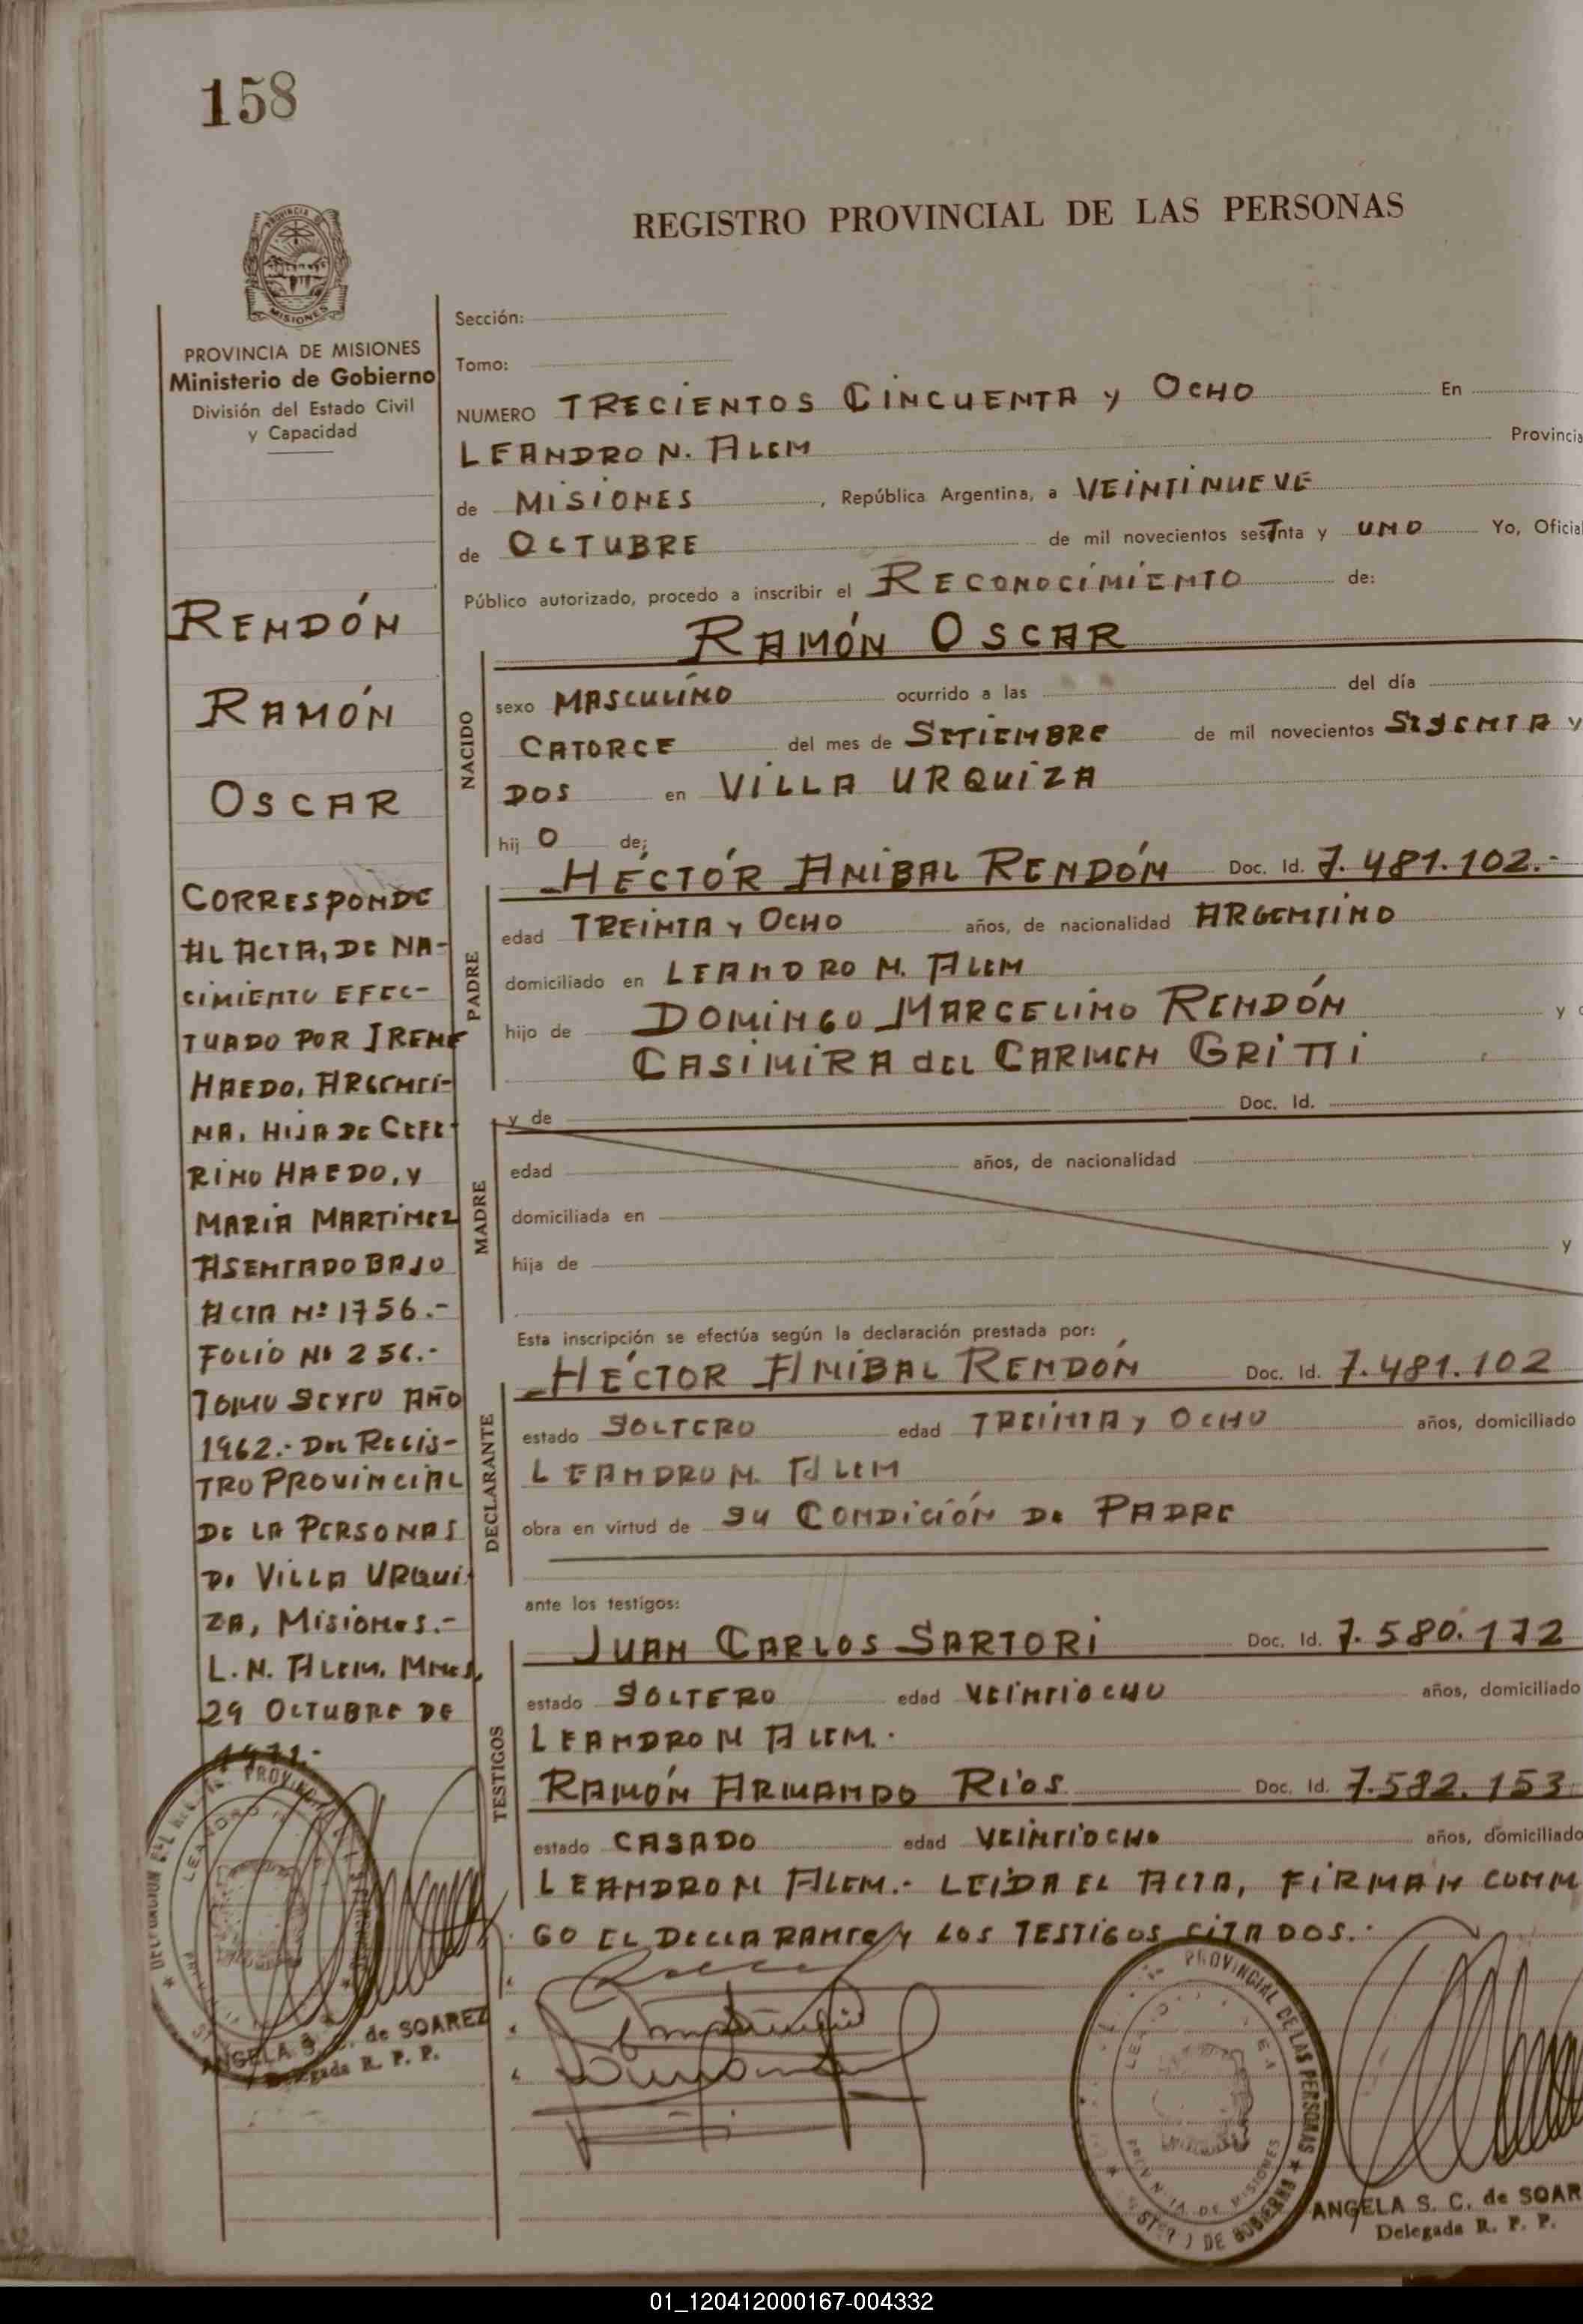 158
REGISTRO PROVINCIAL DE LAS PERSONAS
PROVINCIA DE
MISIONES
PROVINCIA DE MISIONES
Ministerio de Gobierno
División del Estado Civil
y Capacidad
RENDÓN
RAMÓN
OSCAR
CORRESPONDE
AL ACTA, DE NA-
CIMIENTO EFEC-
TUADO POR IRENE
HAEDO, ARGENTI-
NA, HIJA DE CEFE-
RINO HAEDO, Y
MARIA MARTINEZ
ASENTADO BAJO
ACTA Nº 1756.-
FOLIO Nº 256.-
TOMO SEXTO AÑO
1962.- DEL REGIS-
TRO PROVINCIAL
DE LA PERSONAS
DE VILLA URQUI-
ZA, MISIONES.-
L.N. ALEM. Mnes,
29 OCTUBRE DE
1971.-
ANGELA S. C. de SOAREZ
Delegada R. P. P.
Sección:
Tomo:
NUMERO TRECIENTOS CINCUENTA Y OCHO En
LEANDRO N. ALEM Provincia
de MISIONES, República Argentina, a VEINTINUEVE
de OCTUBRE de mil novecientos sesTnta y UNO Yo, Oficial
Público autorizado, procedo a inscribir el RECONOCIMIENTO de:
RAMÓN OSCAR
NACIDO
sexo MASCULINO ocurrido a las del día
CATORCE del mes de SETIEMBRE de mil novecientos SESENTA Y
DOS en VILLA URQUIZA
hij O de:
HÉCTOR ANIBAL RENDÓN Doc. Id. 7.481.102.-
PADRE
edad TREINTA Y OCHO años, de nacionalidad ARGENTINO
domiciliado en LEANDRO N. ALEM
hijo de DOMINGO MARCELINO RENDÓN y
CASIMIRA DEL CARMEN GRITTI
MADRE
y de Doc. Id.
edad años, de nacionalidad
domiciliada en
hija de y
Esta inscripción se efectúa según la declaración prestada por:
HÉCTOR ANIBAL RENDÓN Doc. Id. 7.481.102
DECLARANTE
estado SOLTERO edad TREINTA Y OCHO años, domiciliado
LEANDRO N. ALEM
obra en virtud de SU CONDICIÓN DE PADRE
ante los testigos:
JUAN CARLOS SARTORI Doc. Id. 7.580.172
TESTIGOS
estado SOLTERO edad VEINTIOCHO años, domiciliado
LEANDRO N ALEM.-
RAMÓN ARMANDO RIOS Doc. Id. 7.582.153
estado CASADO edad VEINTIOCHO años, domiciliado
LEANDRO N ALEM.- LEIDA EL ACTA, FIRMAN CONMI
GO EL DECLARANTE Y LOS TESTIGOS CITADOS.-
PROVINCIAL DE LAS PERSONAS
PROVINCIA DE MISIONES
DE GOBIERNO
ANGELA S. C. de SOAR
Delegada R. P. P.
01_120412000167-004332